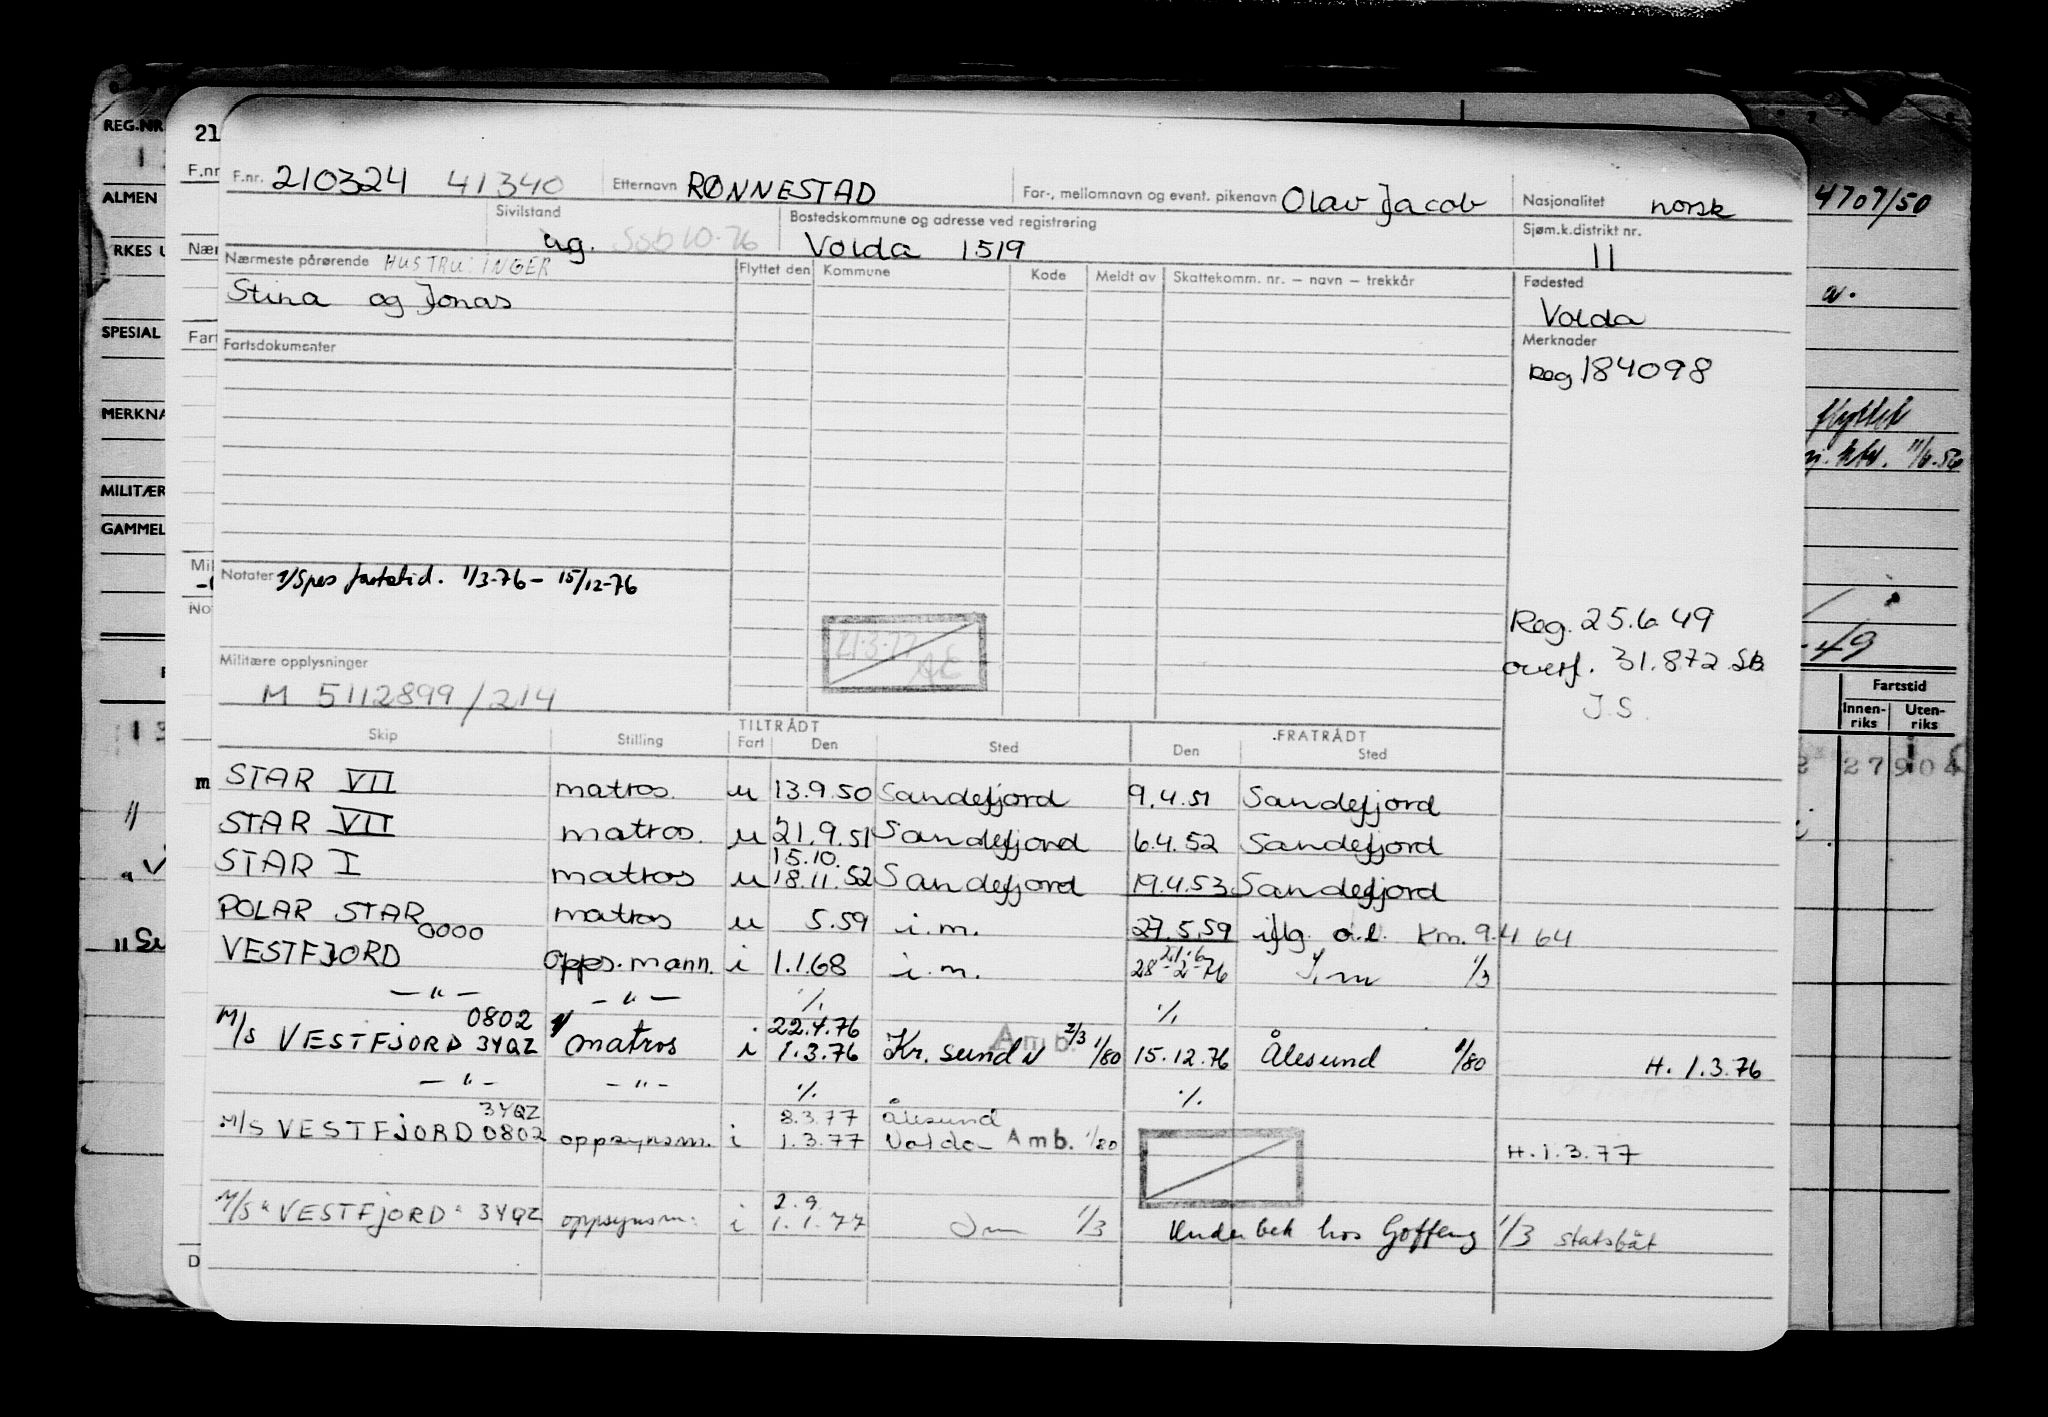 REG.NR
ALMEN
RKES U
SPESIAL
MERKNA
MILITÆR
GAMMEL
21
F.nr
Nær
Fart
Mil
No
4707/50
a.
flyttet
11/6.56
-49
Fartstid
Innen-riks Uten-riks
27904
F.nr. 210324 41340 Etternavn RØNNESTAD For-, mellomnavn og event. pikenavn Olav Jacob Nasjonalitet norsk
Sivilstand ug. Ssb 10-76 Bostedskommune og adresse ved registrering Volda 1519 Sjøm.k.distrikt nr. 11
Nærmeste pårørende HUSTRU: INGER Flyttet den Kommune Kode Meldt av Skattekomm. nr. — navn — trekkår Fødested
Stina og Jonas Volda
Fartsdokumenter Merknader
Reg 184098
Notater 1/Spes fartstid. 1/3-76 - 15/12-76
Reg. 25.6 49
21.3.77 AE
overf. 31.872 SB
J.S.
Militære opplysninger
M 5112899/214
TILTRÅDT FRATRÅDT
Skip Stilling Fart Den Sted Den Sted
STAR VII matros. u 13.9.50 Sandefjord 9.4.51 Sandefjord
STAR VII matros. u 21.9.51 Sandefjord 6.4.52 Sandefjord
15.10.
STAR I matros u 18.11.52 Sandefjord 19.4.53 Sandefjord
POLAR STAR matros u 5.59 i.m. 27.5.59 iflg. o.l. Km. 9.4 64
0000
VESTFJORD opps.mann. i 1.1.68 i.m. 28-2-76 1/3
— " — — " — % %
0802 22.4.76
M/S VESTFJORD 3YQZ 1/ matros i 1.3.76 Kr. sund N Amb. 2/3 1/80 15.12.76 Ålesund 1/80 H. 1.3.76
— " — — " — % %
3YQZ 8.3.77 Ålesund
M/S VESTFJORD 0802 oppsynsm. i 1.3.77 Volda Amb. 1/80 H.1.3.77
2.9.
M/S "VESTFJORD" 3YQZ oppsynsm. i 1.1.77 1/3 Under bek hos Goffeng 1/3 statsbåt
D